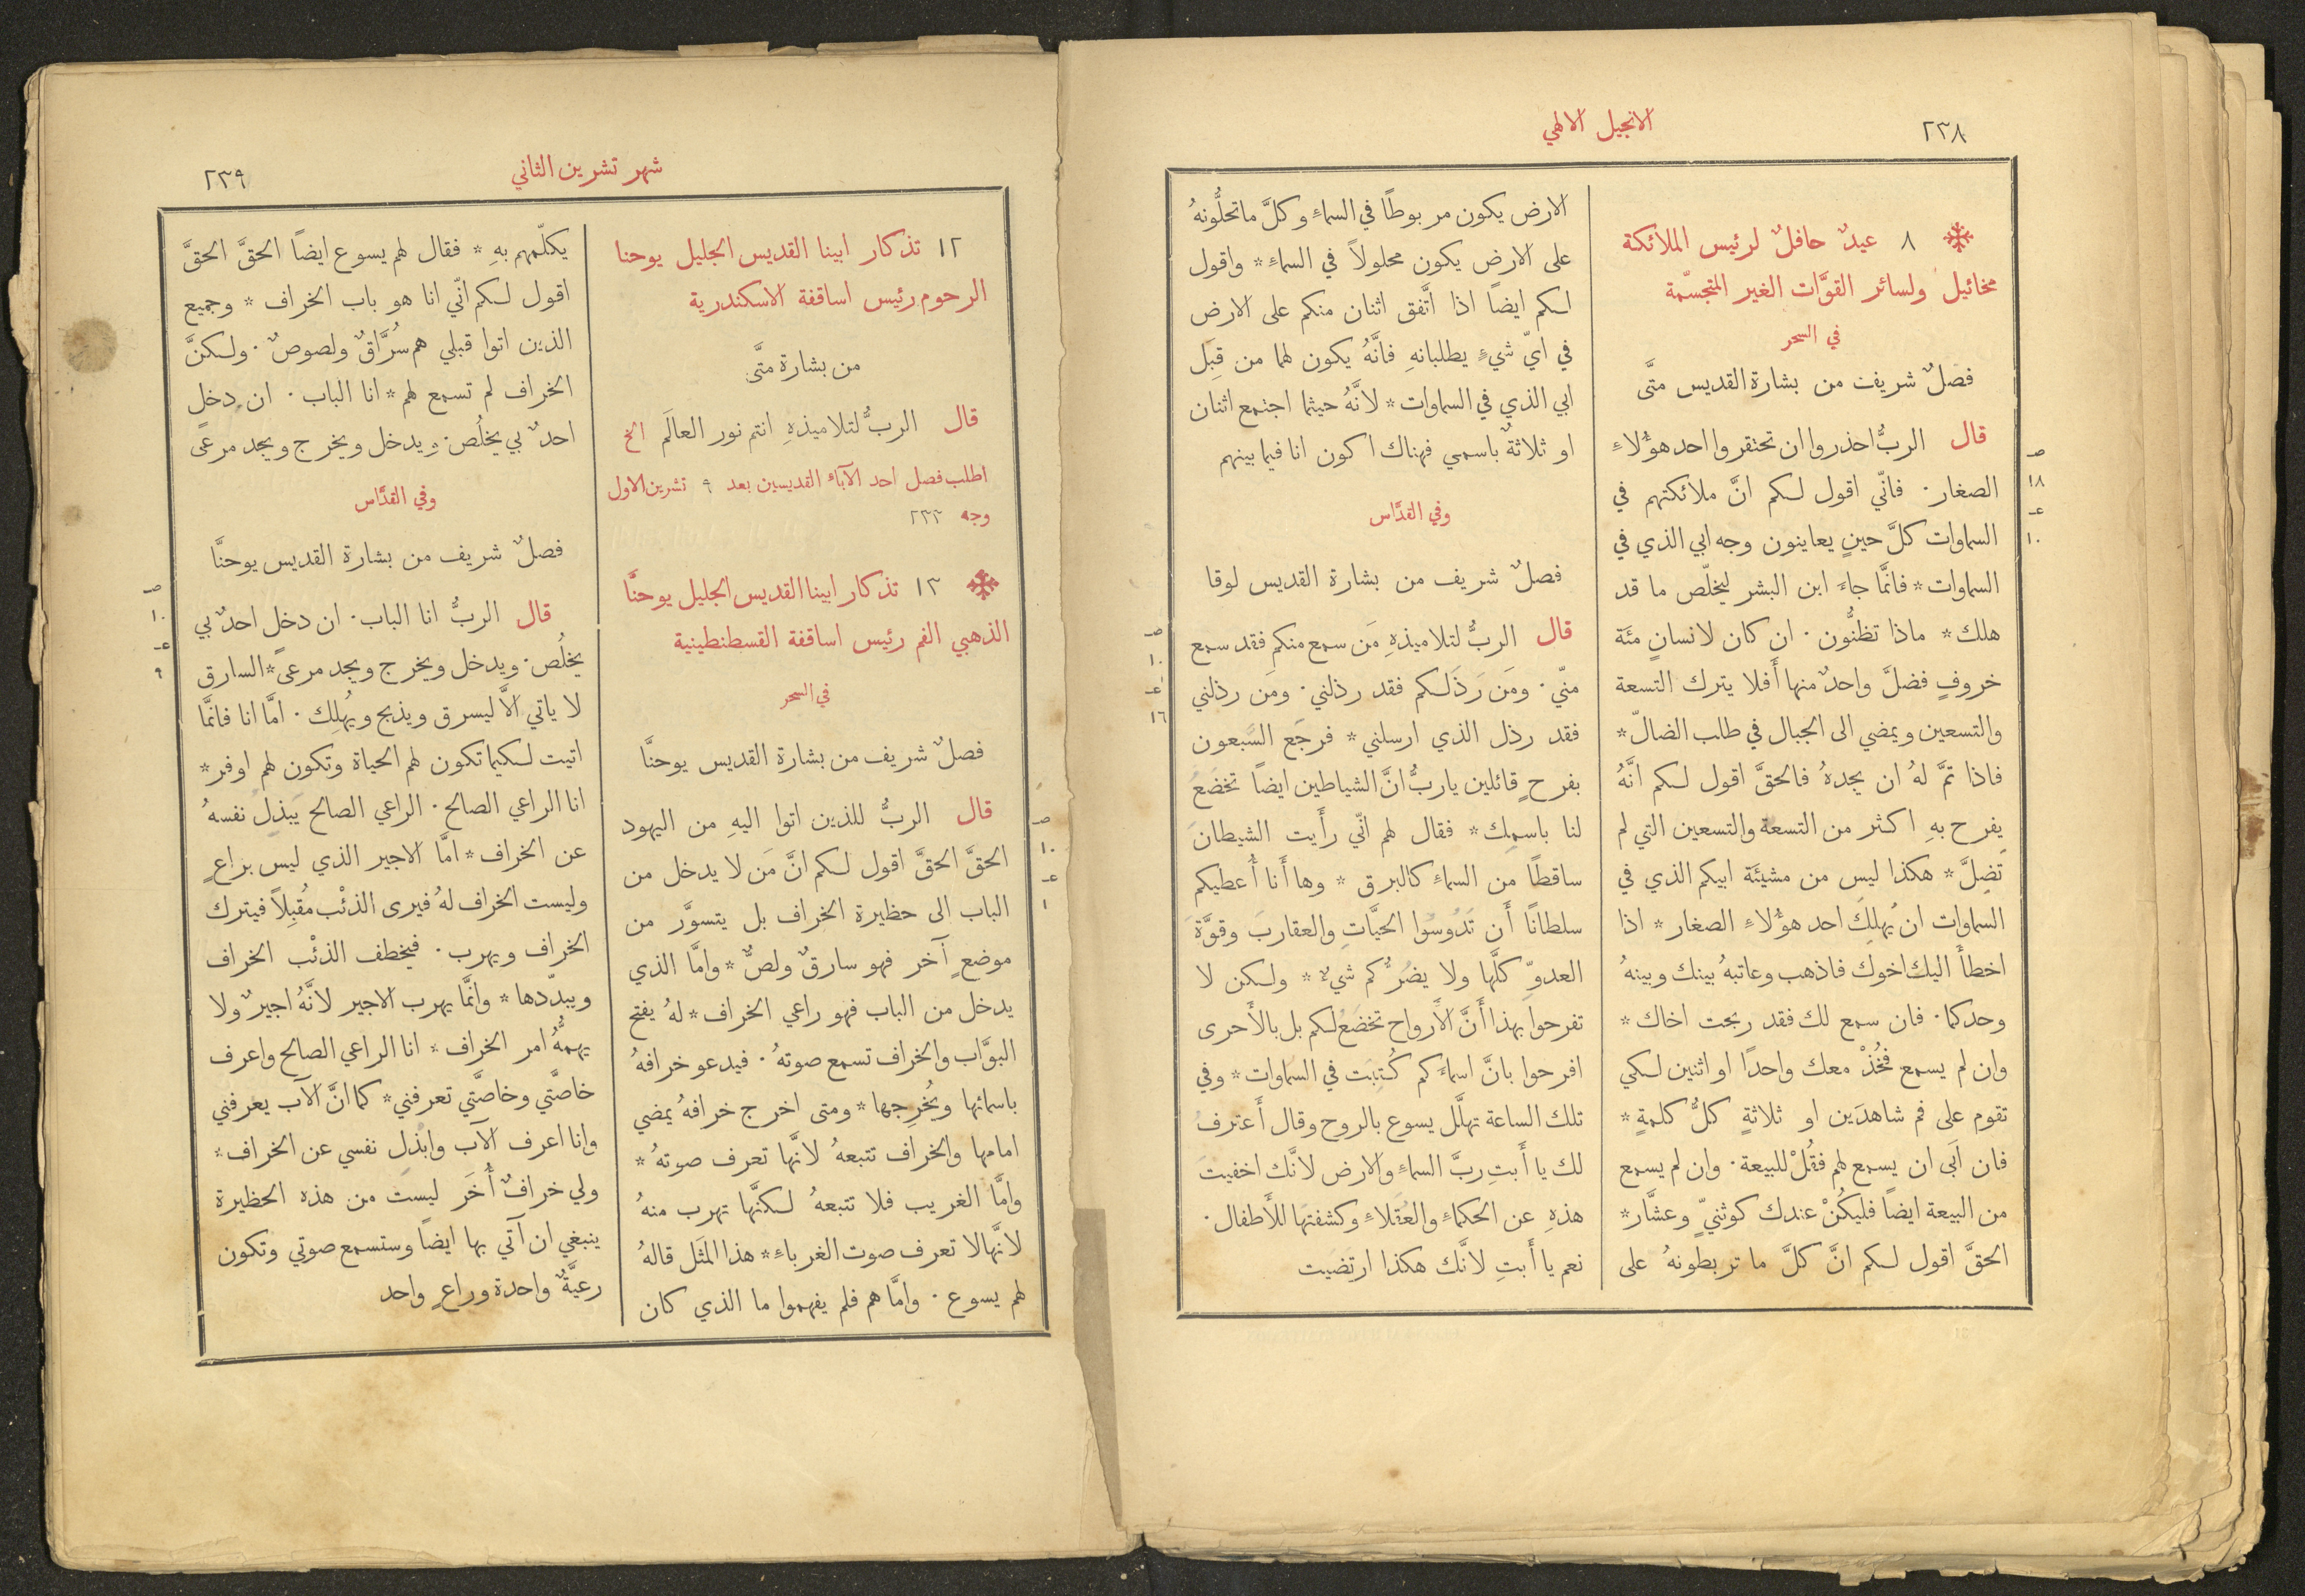 ٢٣٨
الانجيل الالهي
٨ عيدٌ حافلٌ لرئيس الملائكة
مخائيل ولسائر القوَّات الغير المتجسّمة
في السحر
فصلٌ شريف من بشارة القديس متَّى
قال الربُّ احذروا ان تحتقروا احد هؤُلاءِ
الصغار ٠ فانّي اقول لكم انَّ ملائكتهم في
السماوات كلَّ حينٍ يعاينون وجه ابي الذي في
السماوات * فانَّما جاءَ ابن البشر ليخلّص ما قد
هلك * ماذا تظنُّون ٠ ان كان لانسانٍ مئَة
خروفٍ فضلَّ واحدٌ منها أَفلا يترك التسعة
والتسعين ويمضي الى الجبال في طلب الضالّ *
فاذا تمَّ لهُ ان يجدهُ فالحقَّ اقول لكم انَّهُ
يفرح بهِ اكثر من التسعة والتسعين التي لم
تضِلَّ * هكذا ليس من مشيئَة ابيكم الذي في
السماوات ان يُهلِكَ احد هؤُلاءِ الصغار * اذا
اخطأَ اليك اخوك فاذهب وعاتبهُ بينك وبينهُ
وحدكما ٠ فان سمع لك فقد ربحت اخاك *
وان لم يسمع فخُذْ معك واحدًا او اثنين لكي
تقوم على فم شاهدَين او ثلاثةٍ كلُّ كلمةٍ *
فان اَبَى ان يسمع لهم فقُلْ للبيعة ٠ وان لم يسمع
من البيعة ايضاً فليكُنْ عندك كوثنيّ وعشَّار *
الحقَّ اقول لكم انَّ كلَّ ما تربطونهُ على
صـ
١٨
عـ
١٠
الارض يكون مربوطًا في السماءِ وكلَّ ما تحلُّونهُ
على الارض يكون محلولاً في السماءِ * واقول
لكم ايضاً اذا اتَّفق اثنان منكم على الارض
في ايّ شيءٍ يطلبانهِ فانَّهُ يكون لهما من قِبَل
ابي الذي في السماوات * لانَّهُ حيثما اجتمع اثنان
او ثلاثةٌ باسمي فهناك اكون انا فيما بينهم
وفي القدَّاس
فصلٌ شريف من بشارة القديس لوقا
قال الربُّ لتلاميذهِ مَن سمع منكم فقد سمع
منّي ٠ ومَن رَذَلكم فقد رذلني ٠ ومَن رذلني
فقد رذل الذي ارسلني * فرجَع السَّبعون
بفرحٍ قائلين ياربُّ انَّ الشياطين ايضاً تخضَعُ
لنا باسمِك * فقال لهم انّي رأَيت الشيطانَ
ساقطًا من السماءِ كالبرق * وها أَنا أُعطيكم
سلطانًا أَن تَدُوسُوا الحيَّاتِ والعقاربَ وقوَّةَ
العدوِّ كلَّها ولا يضُرُّكم شيءٌ * ولكن لا
تفرحوا بهذا أَنَّ الأَرواح تخضَعُ لكم بل بالأَحرى
افرحوا بانَّ اسماءَكم كُتِبَت في السماوات * وفي
تلك الساعة تهلَّل يسوع بالروح وقال أَعترفُ
لك يا أَبتِ ربَّ السماءِ والارض لانَّك اخفيتَ
هذهِ عن الحكماءِ والعُقَلاءِ وكشفتَها للأَطفال ٠
نعم يا أَبتِ لانَّك هكذا ارتضيت
صـ
١٠
عـ
١٦
شهر تشرين الثاني
٢٣٩
١٢ تذكار ابينا القديس الجليل يوحنا
الرحوم رئيس اساقفة الاسكندرية
من بشارة متَّى
قال الربُّ لتلاميذهِ انتم نور العالَم الخ
اطلب فصل احد الآباء القديسين بعد ٩ تشرين الاول
وجه ٢٢٢
١٣ تذكار ابينا القديس الجليل يوحنَّا
الذهبي الفم رئيس اساقفة القسطنطينية
في السحر
فصلٌ شريف من بشارة القديس يوحنَّا
قال الربُّ للذين اتوا اليهِ من اليهود
الحقَّ الحقَّ اقول لكم انَّ مَن لا يدخل من
الباب الى حظيرة الخراف بل يتسوَّر من
موضعٍ آخر فهو سارقٌ ولصٌّ * وامَّا الذي
يدخل من الباب فهو راعي الخراف * لهُ يفتح
البوَّاب والخراف تسمع صوتهُ ٠ فيدعو خرافهُ
باسمائها ويُخرِجها * ومتى اخرج خرافهُ يمضي
امامها والخراف تتبعهُ لانَّها تعرف صوتهُ *
وامَّا الغريب فلا تتبعهُ لكنَّها تهرب منهُ
لانَّها لا تعرف صوت الغرباءِ * هذا المَثَل قالهُ
لهم يسوع ٠ وامَّا هم فلم يفهموا ما الذي كان
صـ
١٠
عـ
١
يكلّمهم بهِ * فقال لهم يسوع ايضاً الحقَّ الحقَّ
اقول لكم انّي انا هو باب الخراف * وجميع
الذين اتوا قبلي هم سُرَّاقٌ ولصوصٌ ٠ ولكنَّ
الخراف لم تسمع لهم * انا الباب ٠ ان دخل
احدٌ بي يخلُص ٠ ويدخل ويخرج ويجد مرعًى
وفي القدَّاس
فصلٌ شريف من بشارة القديس يوحنَّا
قال الربُّ انا الباب ٠ ان دخل احدٌ بي
يخلُص ٠ ويدخل ويخرج ويجد مرعًى * السارق
لا ياتي الاَّ ليسرق ويذبح ويُهلِك ٠ امَّا انا فانَّما
اتيت لكيما تكون لهم الحياة وتكون لهم اوفر *
انا الراعي الصالح ٠ الراعي الصالح يَبذِل نفسهُ
عن الخراف * امَّا الاجير الذي ليس براعٍ
وليست الخراف لهُ فيرى الذئْب مُقبِلاً فيترك
الخراف ويهرب ٠ فيخطف الذئْب الخراف
ويبدّدها * وانَّما يهرب الاجير لانَّهُ اجيرٌ ولا
يهمُّهُ امر الخراف * انا الراعي الصالح واعرف
خاصَّتي وخاصَّتي تعرفني * كما انَّ الآب يعرفني
وانا اعرف الآب وابذل نفسي عن الخراف *
ولي خرافٌ أُخَر ليست من هذه الحظيرة
ينبغي ان آتي بها ايضاً وستسمع صوتي وتكون
رعيَّةٌ واحدة وراعٍ واحد
صـ
١٠
عـ
٩